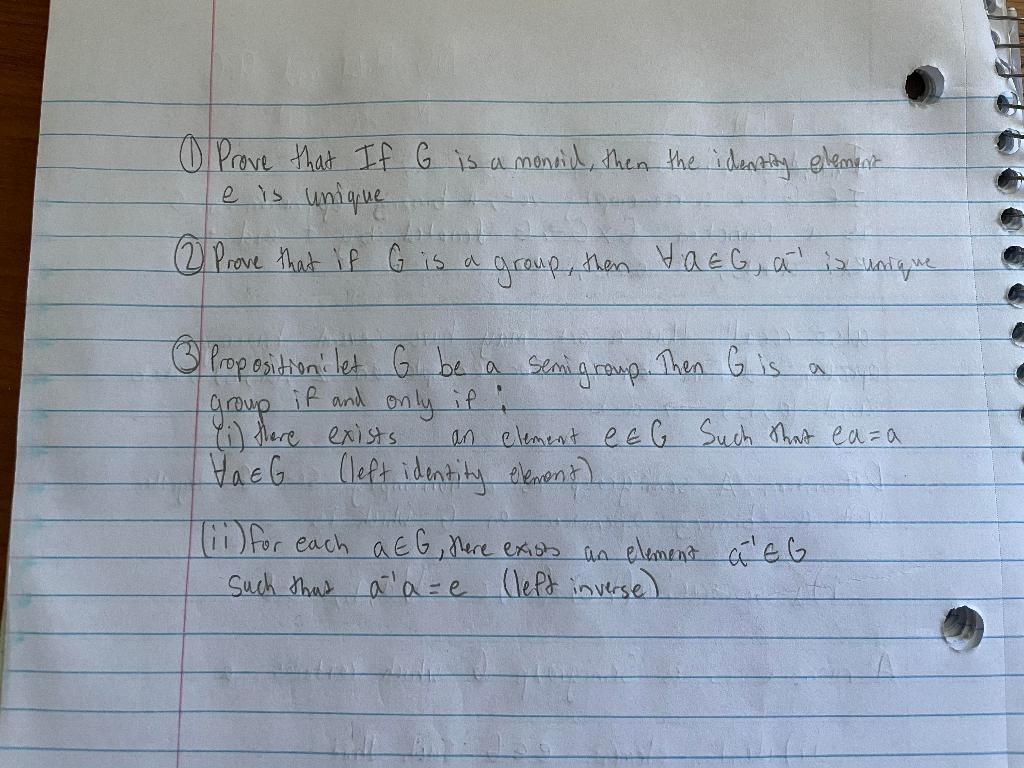 ① Prove that If G is a monoid, then the identity element
e is unique
② Prove that if G is a group, then ∀a∈G, a⁻¹ is unique
③ Proposition: let G be a semigroup. Then G is a
group if and only if :
(i) there exists an element e∈G Such that ea=a
∀a∈G (left identity element)
(ii) for each a∈G, there exists an element a⁻¹∈G
Such that a⁻¹a=e (left inverse)